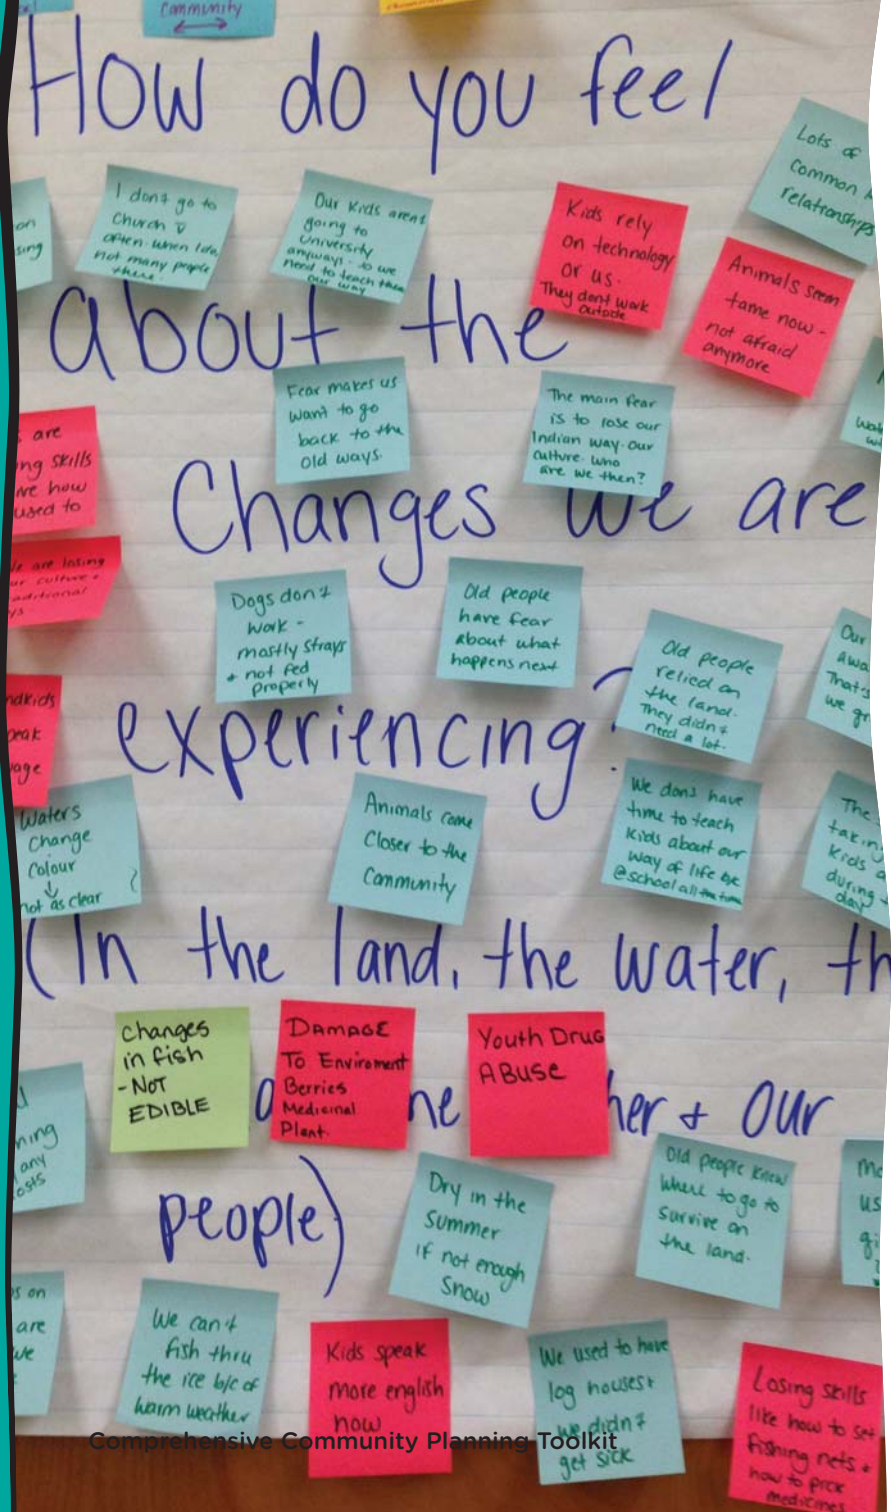 Community
How do you feel
Lots of
Common
relationships
I don't go to
Church
often. when I do,
not many people
there.
Our Kids arent
going to
University
anyways - so we
need to teach them
our way
Kids rely
on technology
or us.
They dont work
outside
Animals seem
tame now -
not afraid
anymore
about the
Fear makes us
want to go
back to the
old ways.
The main fear
is to lose our
Indian way. Our
culture. Who
are we then?
are
skills
how
used to
Changes we are
are losing
culture +
Dogs don't
work -
mostly strays
+ not fed
properly
Old people
have fear
about what
happens next
Old people
relied on
the land.
They didn't
need a lot.
Our
That's
we
experiencing?
Waters
Change
Colour
↓
not as clear
Animals come
Closer to the
Community
We dont have
time to teach
Kids about our
way of life b/c
@school all the time
The
Kids
during
day
(In the land, the water, th
Changes
in fish
- NOT
EDIBLE
DAMAGE
To Enviroment
Berries
Medicinal
Plant.
Youth Drug
ABuse
her + our
people)
any
Dry in the
Summer
if not enough
Snow
Old people knew
where to go to
survive on
the land.
us
on
are
We can't
fish thru
the ice b/c of
warm weather
Kids speak
more english
now
We used to have
log houses +
we didn't
get sick
Losing skills
like how to set
fishing nets +
how to pick
medicines
Comprehensive Community Planning Toolkit